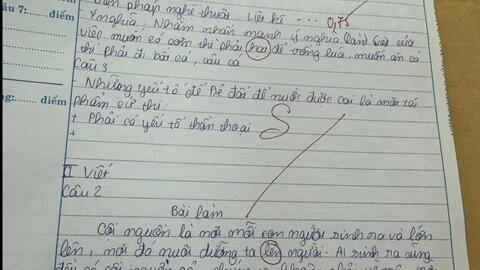 Biện pháp nghệ thuật: Liệt kê ... 0,75
Câu 7: ...... điểm
Ý nghĩa: Nhấm nhấn mạnh ý nghĩa của
việc muốn có cơm thì phải để trồng lúa, muốn ăn cá
thì phải đi bắt cá, câu cá
Câu 3
Những yếu tố để Đẻ đất đẻ nước được coi là một tác
phẩm sử thi:
+ Phải có yếu tố thần thoại S
+
ng: ...... điểm
II Viết
Câu 2
Bài làm
Cội nguồn là nơi mỗi con người sinh ra và lớn
lên, nơi đó nuôi dưỡng ta lên người. Ai sinh ra cũng